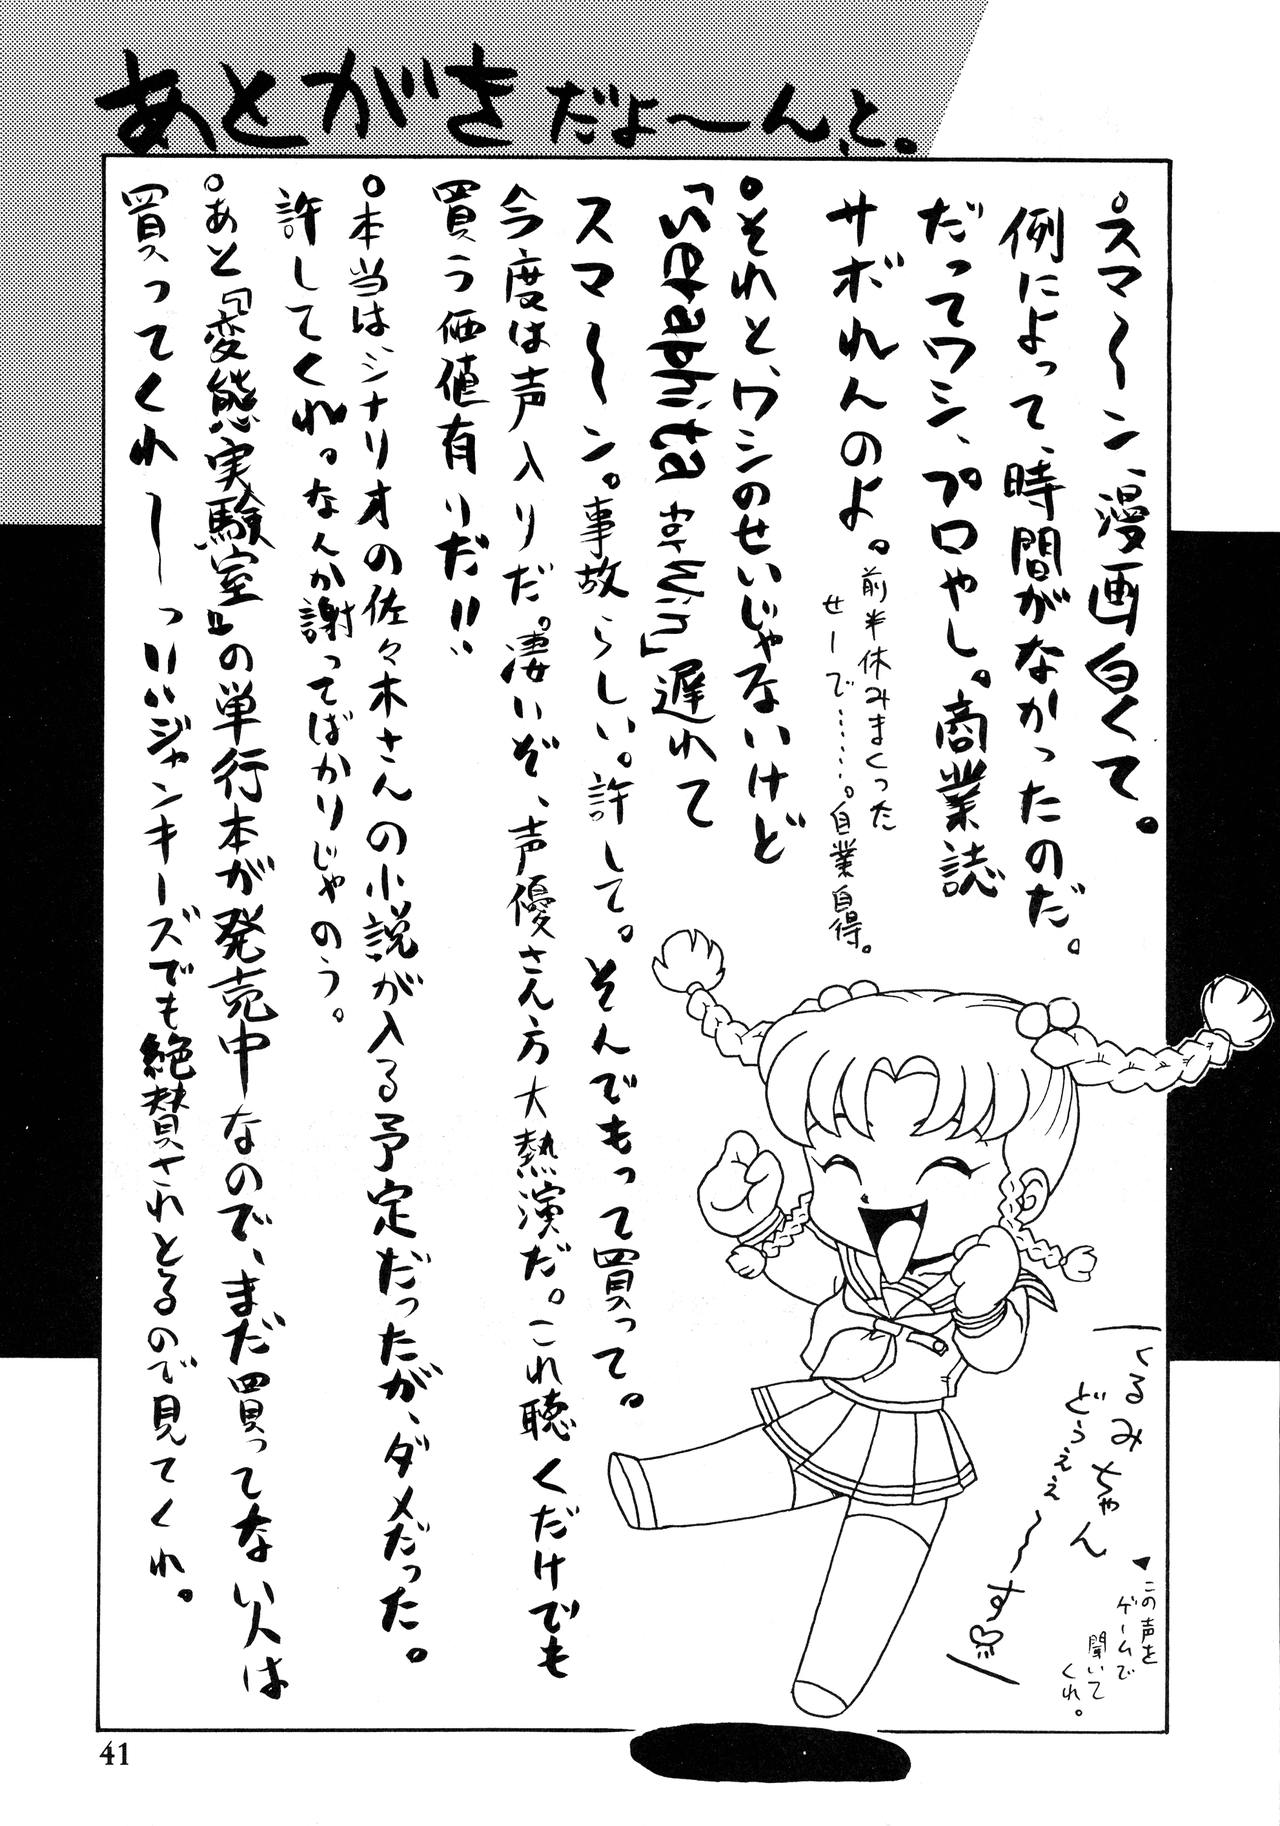 あとがきだよ〜ん、と。
。スマ〜ン、漫画白くて。
例によって、時間がなかったのだ。
だってワシ、プロやし。商業誌
サボれんのよ。前半休みまくった
せーで……。自業自得。
。それと、ワシのせいじゃないけど
「seraphita for Win」遅れて
スマ〜ン。事故らしい。許して。そんでもって買って。
今度は声入りだ。凄いぞ、声優さん方大熱演だ。これ聴くだけでも
買う価値有りだ!!
。本当はシナリオの佐々木さんの小説が入る予定だったが、ダメだった。
許してくれ。なんか謝ってばかりじゃのう。
。あと『変態実験室』の単行本が発売中なので、まだ買ってない人は
買ってくれ〜っいいジャンキーズでも絶賛されとるので見てくれ。
くるみちゃん
どぅぇぇ〜〜す♡
▼この声を
ゲームで
聞いて
くれ。
41